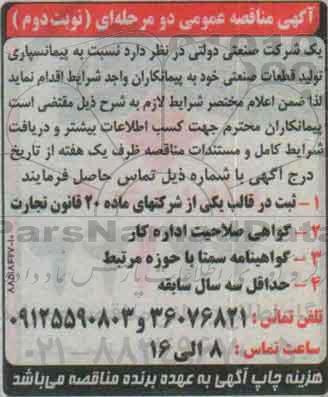 آگهی مناقصه عمومی دو مرحله‌ای ( نوبت دوم )
یک شرکت صنعتی دولتی در نظر دارد نسبت به پیمانسپاری
تولید قطعات صنعتی خود به پیمانکاران واجد شرایط اقدام نماید
لذا ضمن اعلام مختصر شرایط لازم به شرح ذیل مقتضی است
پیمانکاران محترم جهت کسب اطلاعات بیشتر و دریافت
شرایط کامل و مستندات مناقصه ظرف یک هفته از تاریخ
درج آگهی با شماره ذیل تماس حاصل فرمایند
۱- ثبت در قالب یکی از شرکتهای ماده ۲۰ قانون تجارت
۲- گواهی صلاحیت اداره کار
۳- گواهینامه سمتا با حوزه مرتبط
۴- حداقل سه سال سابقه
تلفن تماس : ۳۶۰۷۶۸۲۱ و ۰۹۱۲۵۵۹۰۸۰۳
ساعت تماس : ۸ الی ۱۶
هزینه چاپ آگهی به عهده برنده مناقصه می‌باشد